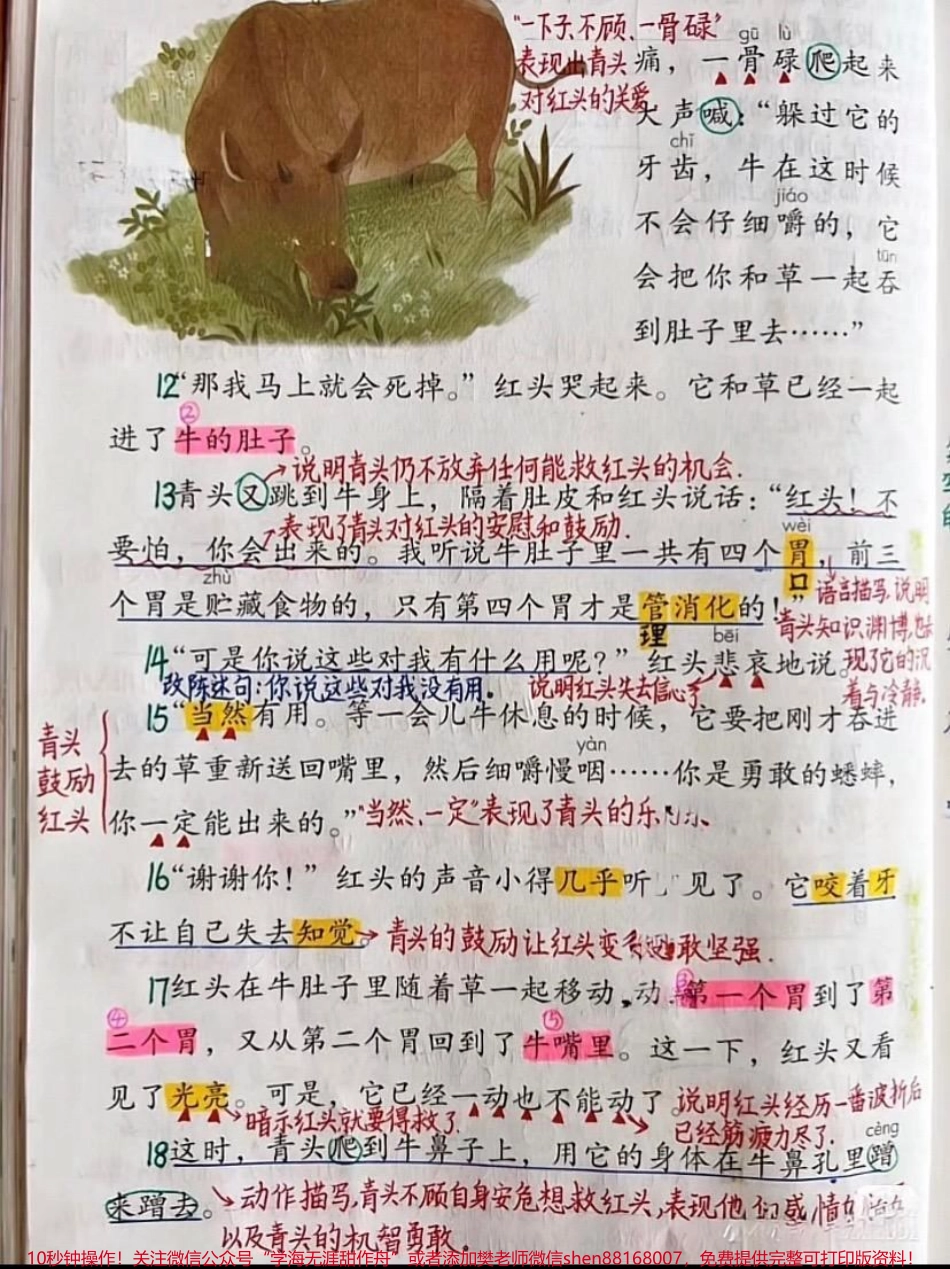 "一下子、不顾、一骨碌"
表现出青头
对红头的关爱
gū lù
痛，一骨碌爬起来
大声喊："躲过它的
chǐ
牙齿，牛在这时候
jiáo
不会仔细嚼的，它
tūn
会把你和草一起吞
到肚子里去……"
12"那我马上就会死掉。"红头哭起来。它和草已经一起
②
进了牛的肚子。
说明青头仍不放弃任何能救红头的机会.
13青头又跳到牛身上，隔着肚皮和红头说话："红头！不
表现了青头对红头的安慰和鼓励.
wèi
要怕，你会出来的。我听说牛肚子里一共有四个胃，前三
zhù
口
语言描写,说明
个胃是贮藏食物的，只有第四个胃才是管消化的！"
青头知识渊博,也
理
bēi
14"可是你说这些对我有什么用呢？"红头悲哀地说。
现了它的沉
着与冷静.
改陈述句:你说这些对我没有用.
说明红头失去信心了
15"当然有用。等一会儿牛休息的时候，它要把刚才吞进
青头
鼓励
红头
yàn
去的草重新送回嘴里，然后细嚼慢咽……你是勇敢的蟋蟀，
你一定能出来的。"
"当然、一定"表现了青头的乐
16"谢谢你！"红头的声音小得几乎听 见了。它咬着牙
不让自己失去知觉。
青头的鼓励让红头变 敢坚强.
17红头在牛肚子里随着草一起移动,动
③
第一个胃到了第
④
⑤
二个胃，又从第二个胃回到了牛嘴里。这一下，红头又看
见了光亮。可是，它已经一动也不能动了。
暗示红头就要得救了.
说明红头经历一番波折后
已经筋疲力尽了.
cèng
18这时，青头爬到牛鼻子上，用它的身体在牛鼻孔里蹭
来蹭去。
动作描写,青头不顾自身安危想救红头,表现他们感情
以及青头的机智勇敢.
10秒钟操作！关注微信公众号"学海无涯甜作舟"或者添加樊老师微信shen88168007，免费提供完整可打印版资料！